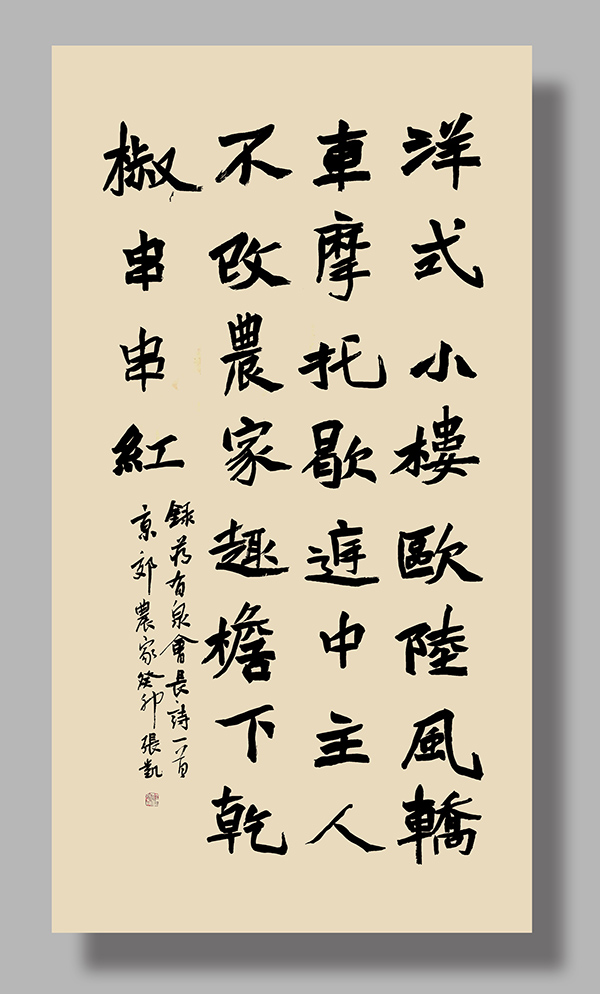 洋式小樓歐陸風轎
車摩托歇庭中主人
不改農家趣檐下乾
椒串串紅
錄蔣有泉會長詩一首
京郊農家癸卯張凱